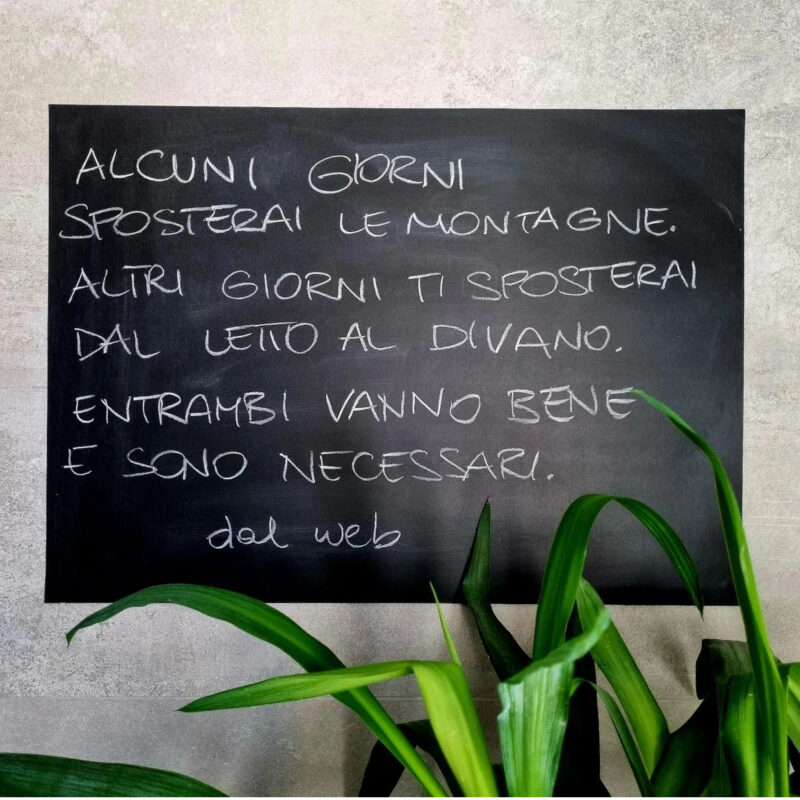 ALCUNI GIORNI
SPOSTERAI LE MONTAGNE.
ALTRI GIORNI TI SPOSTERAI
DAL LETTO AL DIVANO.
ENTRAMBI VANNO BENE
E SONO NECESSARI.
dal web